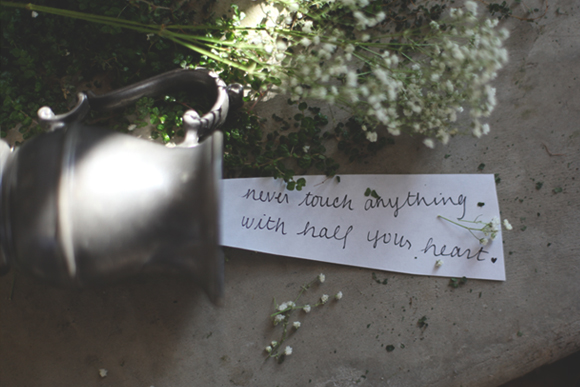 never touch anything
with half your heart. ♥